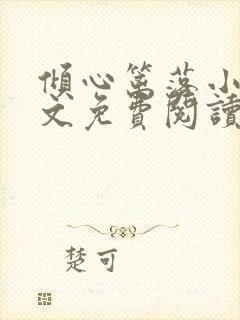 傾心篱落小
文免費閱讀
楚可